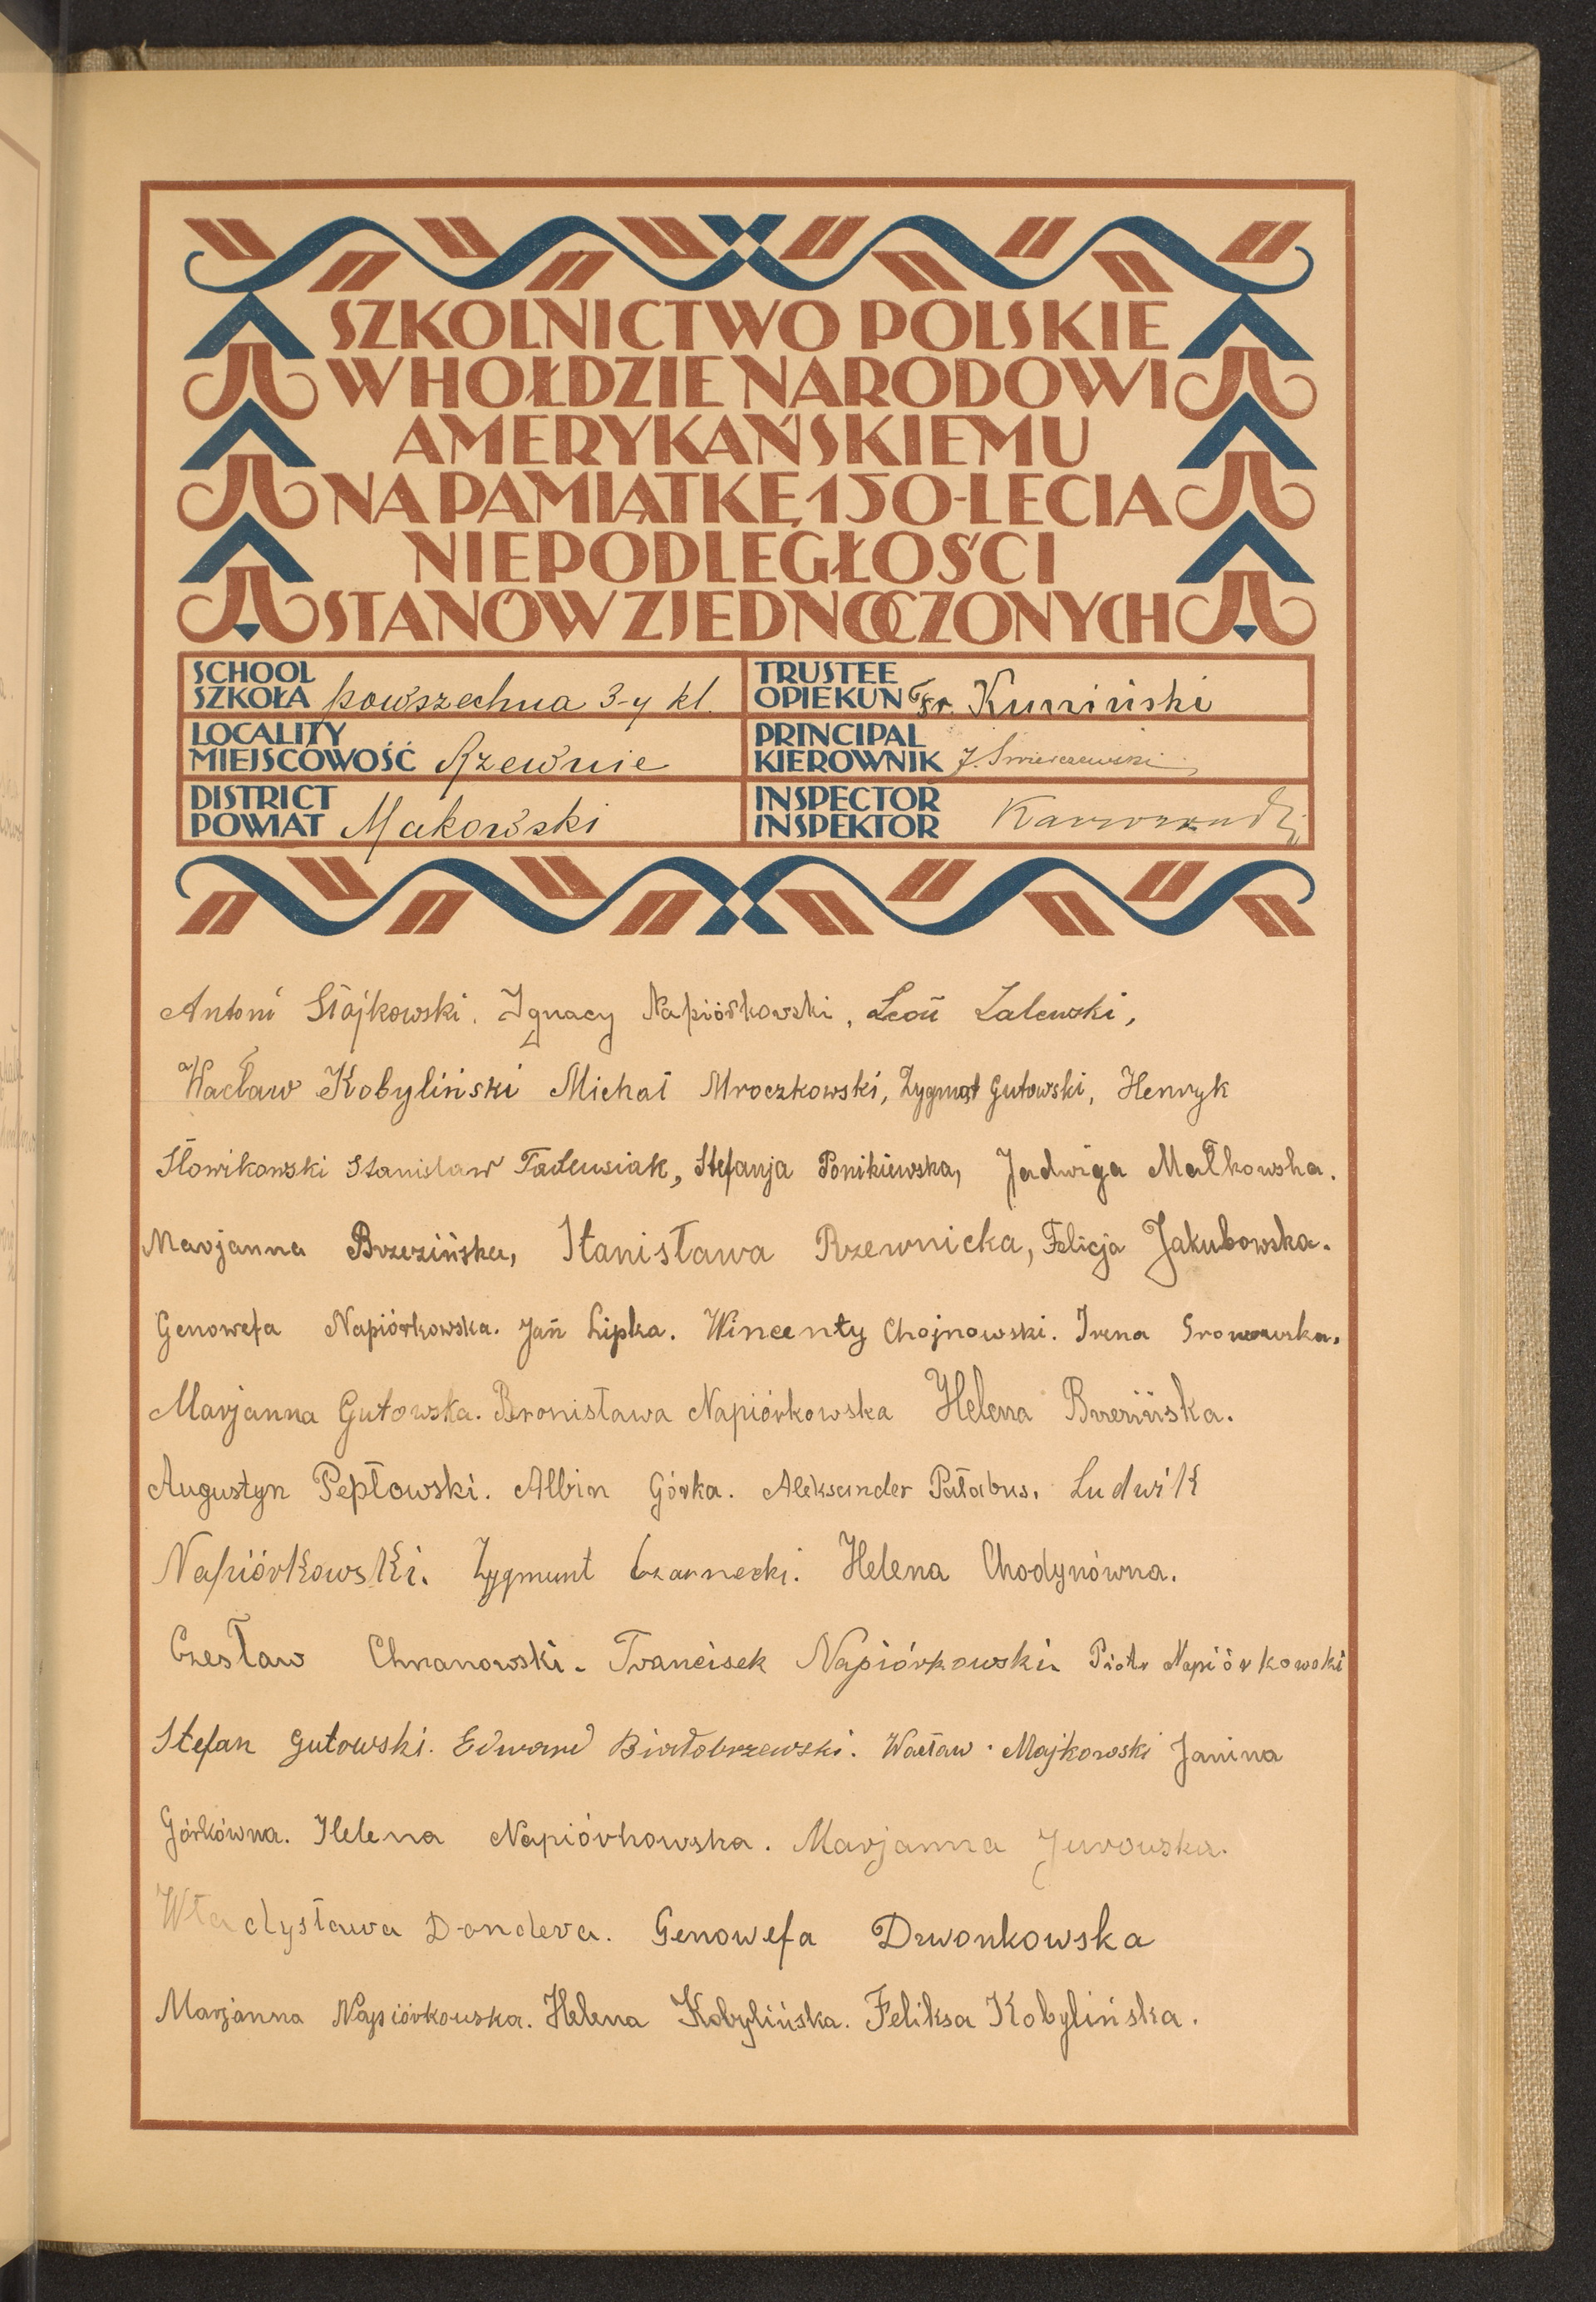 SZKOLNICTWO POLSKIE
W HOŁDZIE NARODOWI
AMERYKAŃSKIEMU
NA PAMIĄTKĘ 150-LECIA
NIEPODLEGŁOŚCI
STANÓW ZJEDNOCZONYCH
SCHOOL
SZKOŁA powszechna 3-y kl.
TRUSTEE
OPIEKUN Fr.
LOCALITY
MIEJSCOWOŚĆ Rzewnie
PRINCIPAL
KIEROWNIK J.
DISTRICT
POWIAT Makowski
INSPECTOR
INSPEKTOR
Antoni Stojkowski. Ignacy Napiórkowski, Leon Zalewski,
Wacław Kobyliński Michał Mroczkowski, Zygmut Gutowski, Henryk
Słowikowski Stanisław Tadeusiak, Stefanja Ponikiewska, Jadwiga Małkowska.
Marjanna Brzezińska, Stanisława Rzewnicka, Felicja Jakubowska.
Genowefa Napiórkowska. Jan Lipka. Wincenty Chojnowski. Irena
Marjanna Gutowska. Bronisława Napiórkowska Helena
Augustyn Pepłowski. Albin Górka. Aleksander Pałabus. Ludwik
Napiórkowski. Zygmunt Czarnecki. Helena Chodynówna.
Czesław Chrzanowski. Francisek Napiórkowski. Piotr Napiórkowski
Stefan Gutowski. Edward Białobrzewski. Wacław Majkowski Janina
Górkówna. Helena Napiórkowska. Marjanna Jurowska.
Władysława Dandera. Genowefa Drwonkowska
Marjanna Napiórkowska. Helena Kobylińska. Feliksa Kobylińska.